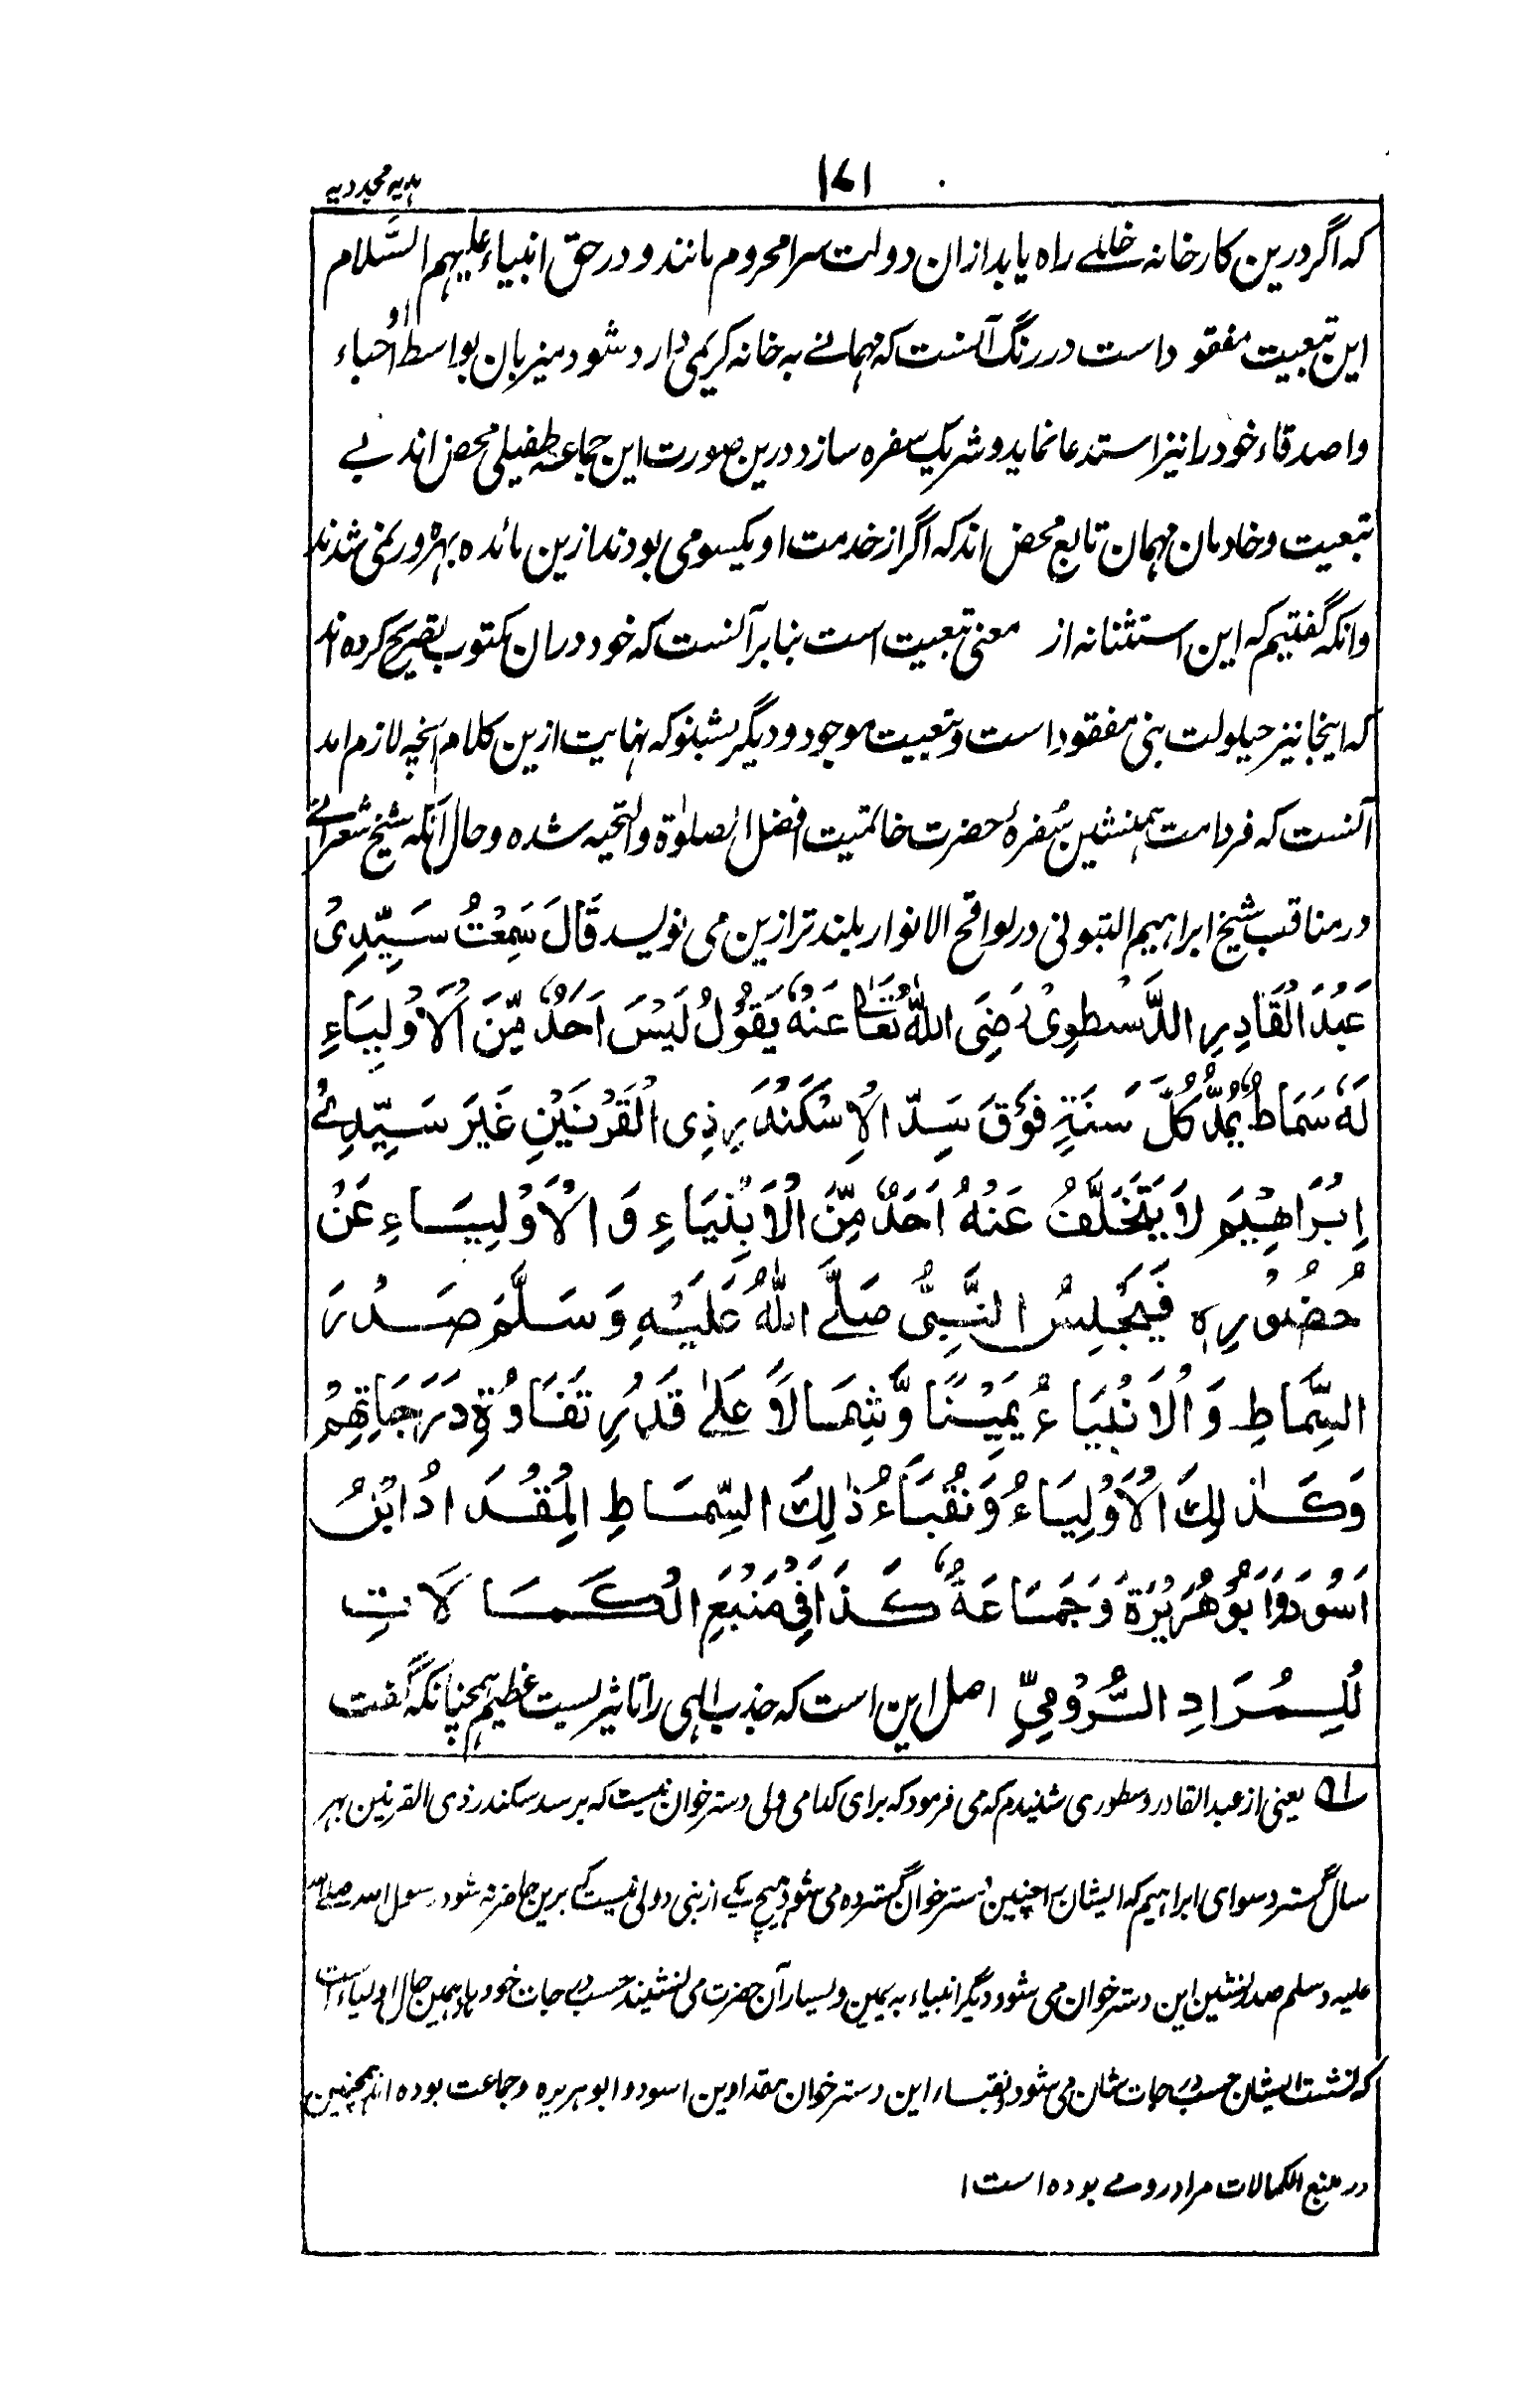 ہدیہ مجددیہ
۱۷۱
کہ اگر درین کارخانہ خللے راہ یابد ازان دولت سرا محروم مانند و در حق انبیاء علیہم السَّلام
این تبعیت مفقود است در رنگ آنست کہ مہمانے بہ خانہ کریمی وارد شود میزبان بواسطہ او احباء
واصدقاء خود را نیز استدعا نماید و شریک سفرہ سازد درین صورت این جماعہ طفیلی محض اند بے
تبعیت و خادمان مہمان تابع محض اند کہ اگر از خدمت او یکسو می بودند ازین مائدہ بہرہ ور نمی شدند
وانکہ گفتیم کہ این استثنا نہ از معنی تبعیت است بنابر آنست کہ خود دران مکتوب تصریح کردہ اند
کہ اینجا نیز حیلولت بنی مفقود است و تبعیت موجود و دیگر بشنو کہ نہایت ازین کلام انچہ لازم امد
آنست کہ فرد امت ہمنشین سُفرۂ حضرت خاتمیت افضل الصلوٰۃ والتحیہ شدہ و حال آنکہ شیخ شعرانے
در مناقب شیخ ابراہیم المتبولی در لواقح الانوار بلند تر ازین می نویسد قَالَ سَمِعْتُ سَیِّدِیْ
عَبْدَ الْقَادِرِ الدَّسْطوِیْ رَضِیَ اللّٰہُ تَعَالٰی عَنْہُ یَقُوْلُ لَیْسَ اَحَدٌ مِّنَ الْاَوْلِیَاءِ
لَہٗ سَمَاطٌ یُمَدُّ کُلَّ سَنَۃٍ فَوْقَ سَدِّ الْاِسْکَنْدَرِ ذِی الْقَرْنَیْنِ غَیْرَ سَیِّدِیْ
اِبْرَاھِیْمَ لَا یَتَخَلَّفُ عَنْہُ اَحَدٌ مِّنَ الْاَنْبِیَاءِ وَ الْاَوْلِیَاءِ عَنْ
حُضُوْرِہٖ فَیَجْلِسُ النَّبِیُّ صَلَّے اللّٰہُ عَلَیْہِ وَسَلَّمَ صَدْرَ
السِّمَاطِ وَ الْاَنْبِیَاءُ یَمِیْنًا وَّ شِمَالًا عَلٰے قَدْرِ تَفَاوُۃِ دَرَجَاتِھِمْ
وَکَذٰلِکَ الْاَوْلِیَاءُ وَنُقَبَاءُ ذٰلِکَ السِّمَاطِ الْمِقْدَادُ ابْنُ
اَسْوَدَ وَاَبُوْ ھُرَیْرَۃَ وَجَمَاعَۃٌ کَذَا فِیْ مَنْبَعِ الْکَمَالَاتِ
لِلْمُرَادِ الرُّوْمِیِّ اصل این است کہ جذب الہی را تاثیریست عظیم ہمچنانکہ گفت
۱ یعنی از عبد القادر دسطوری شنیدم کہ می فرمود کہ برای کدامی ولی دسترخوان نیست کہ بر سد سکندر ذی القرنین بہر
سال گسترد سوای ابراہیم کہ ایشان را چنین دسترخوان گستردہ می شود ہیچ یکے از نبی و ولی نیست کہ برین جا حاضر نہ شود رسول اللہ صلے اللہ
علیہ وسلم صدر نشین این دسترخوان می شود و دیگر انبیاء بہ یمین و یسار آن حضرت می نشینند حسب درجات خود ہا و ہمین حال اولیاء است
کہ نشست ایشان حسب درجات شان می شود و نقباء این دسترخوان مقداد بن اسود و ابو ہریرہ و جماعت بودہ اند ہمچنین
در منبع الکمالات مراد رومے بودہ است ۱